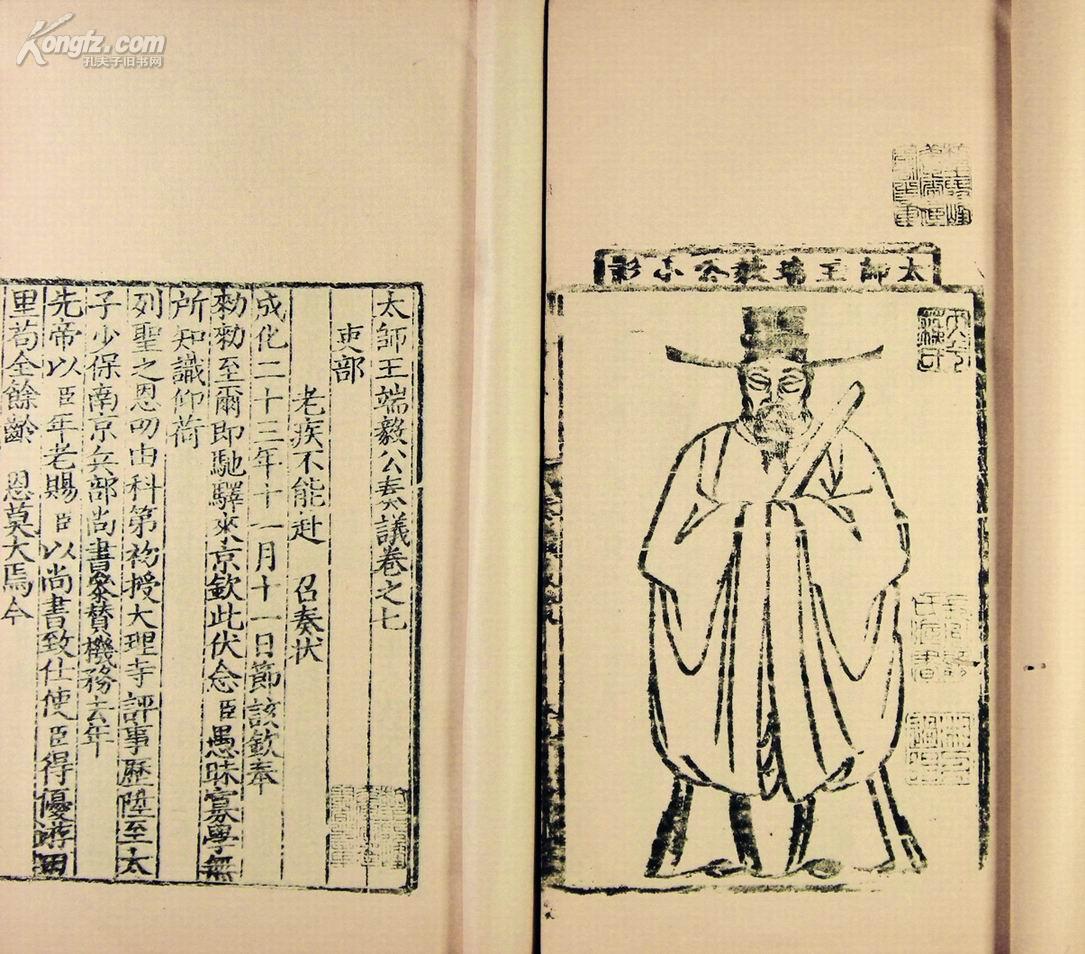 Kongfz.com
孔夫子旧书网
太師王端毅公小影
太師王端毅公奏議卷之七
吏部
老疾不能赴 召奏狀
成化二十三年十一月十一日節該欽奉
勑勑至爾即馳驛來京欽此伏念臣愚昧寡學無
所知識仰荷
列聖之恩叨由科第初授大理寺評事歷陞至太
子少保南京兵部尚書叅賛機務去年
先帝以臣年老賜臣以尚書致仕使臣得優游田
里苟全餘齡 恩莫大焉今